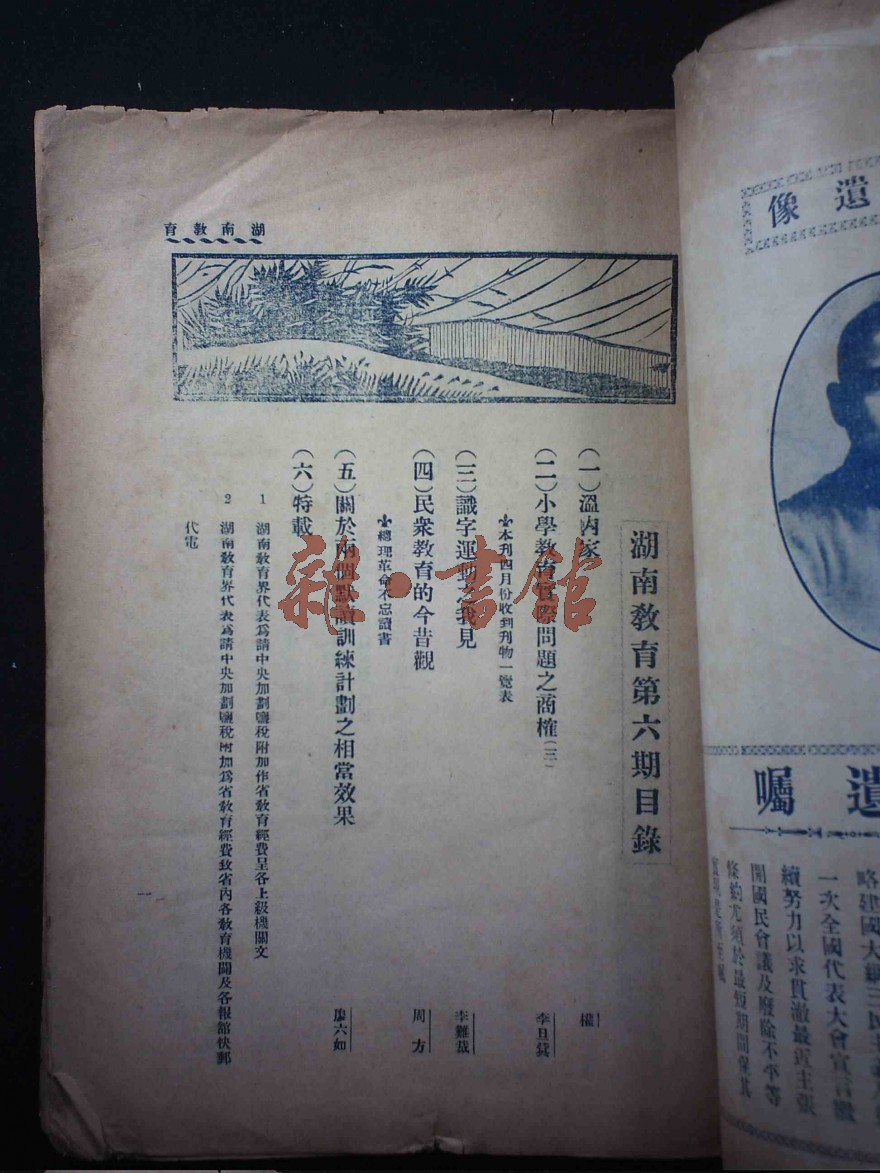 湖南教育
湖南教育第六期目錄
(一)溫內家
權
(二)小學教育實際問題之商榷(三)
李旦冀
本刊四月份收到刊物一覽表
(三)識字運動之我見
李難裁
(四)民衆教育的今昔觀
周方
總理革命不忘讀書
(五)關於兩個默讀訓練計劃之相當效果
廖六如
(六)特載
1 湖南教育界代表爲請中央加劃鹽稅附加作省教育經費呈各上級機關文
2 湖南教育界代表爲請中央加劃鹽稅附加爲省教育經費致省內各教育機關及各報館快郵
代電
一
雜·書館
遺像
遺囑
略建國大綱三民主義
一次全國代表大會宣言繼
續努力以求貫澈最近主張
開國民會議及廢除不平等
條約尤須於最短期間促其
實現是所至囑